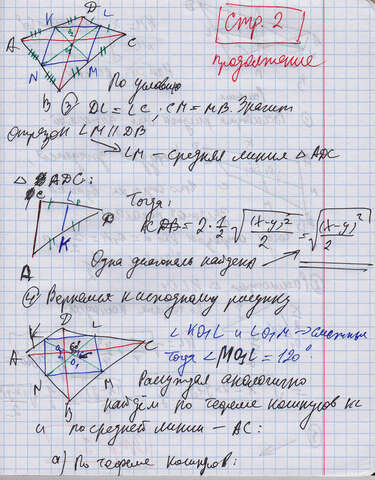 Стр. 2
продолжение
D
K L
A C
N M
B
По условию
③ DL = LC; CM = MB. Значит
отрезок LM || DB
LM – средняя линия △ ADC
△ ADC:
C L D
K
A
Тогда:
= 2 · 1/2 √((x-y)²/2) = √((x-y)²/2)
Одна диагональ найдена
④ Вернёмся к исходному рисунку
D
K L
A C
O₁
N M
B
∠ KO₁L и ∠ LO₁M → смежные
Тогда ∠ MO₁L = 120°
Рассуждая аналогично
найдём по теореме косинусов KL
и по средней линии – AC:
а) По теореме косинусов: